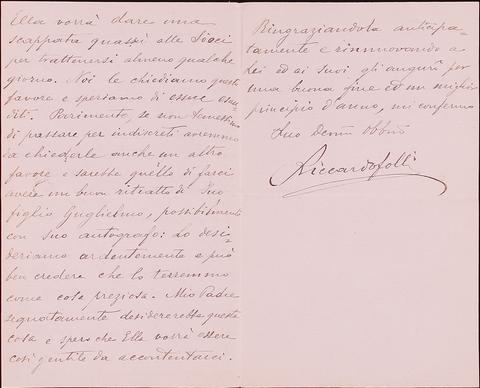 Ella vorrà dare una
scappata quassù alle Sieci
per trattenersi almeno qualche
giorno. Noi le chiediamo questo
favore e speriamo di esser esau-
diti. Parimente, se non temessimo
di passare per indiscreti avremmo
da chiederle anche un altro
favore e sarebbe quello di farci
avere un buon ritratto di Suo
figlio Guglielmo, possibilmente
con suo autografo: Lo desi-
deriamo ardentemente e può
ben credere che lo terremmo
come cosa preziosa. Mio Padre
segnatamente desidererebbe questa
cosa e spero che Ella vorrà essere
così gentile da accontentarci.
Ringraziandola anticipa-
tamente e rinnovando a
Lei ed ai suoi gli augurî per
una buona fine ed un miglior
principio d'anno, mi confermo
Suo Devmo Obbmo
Riccardo Folli